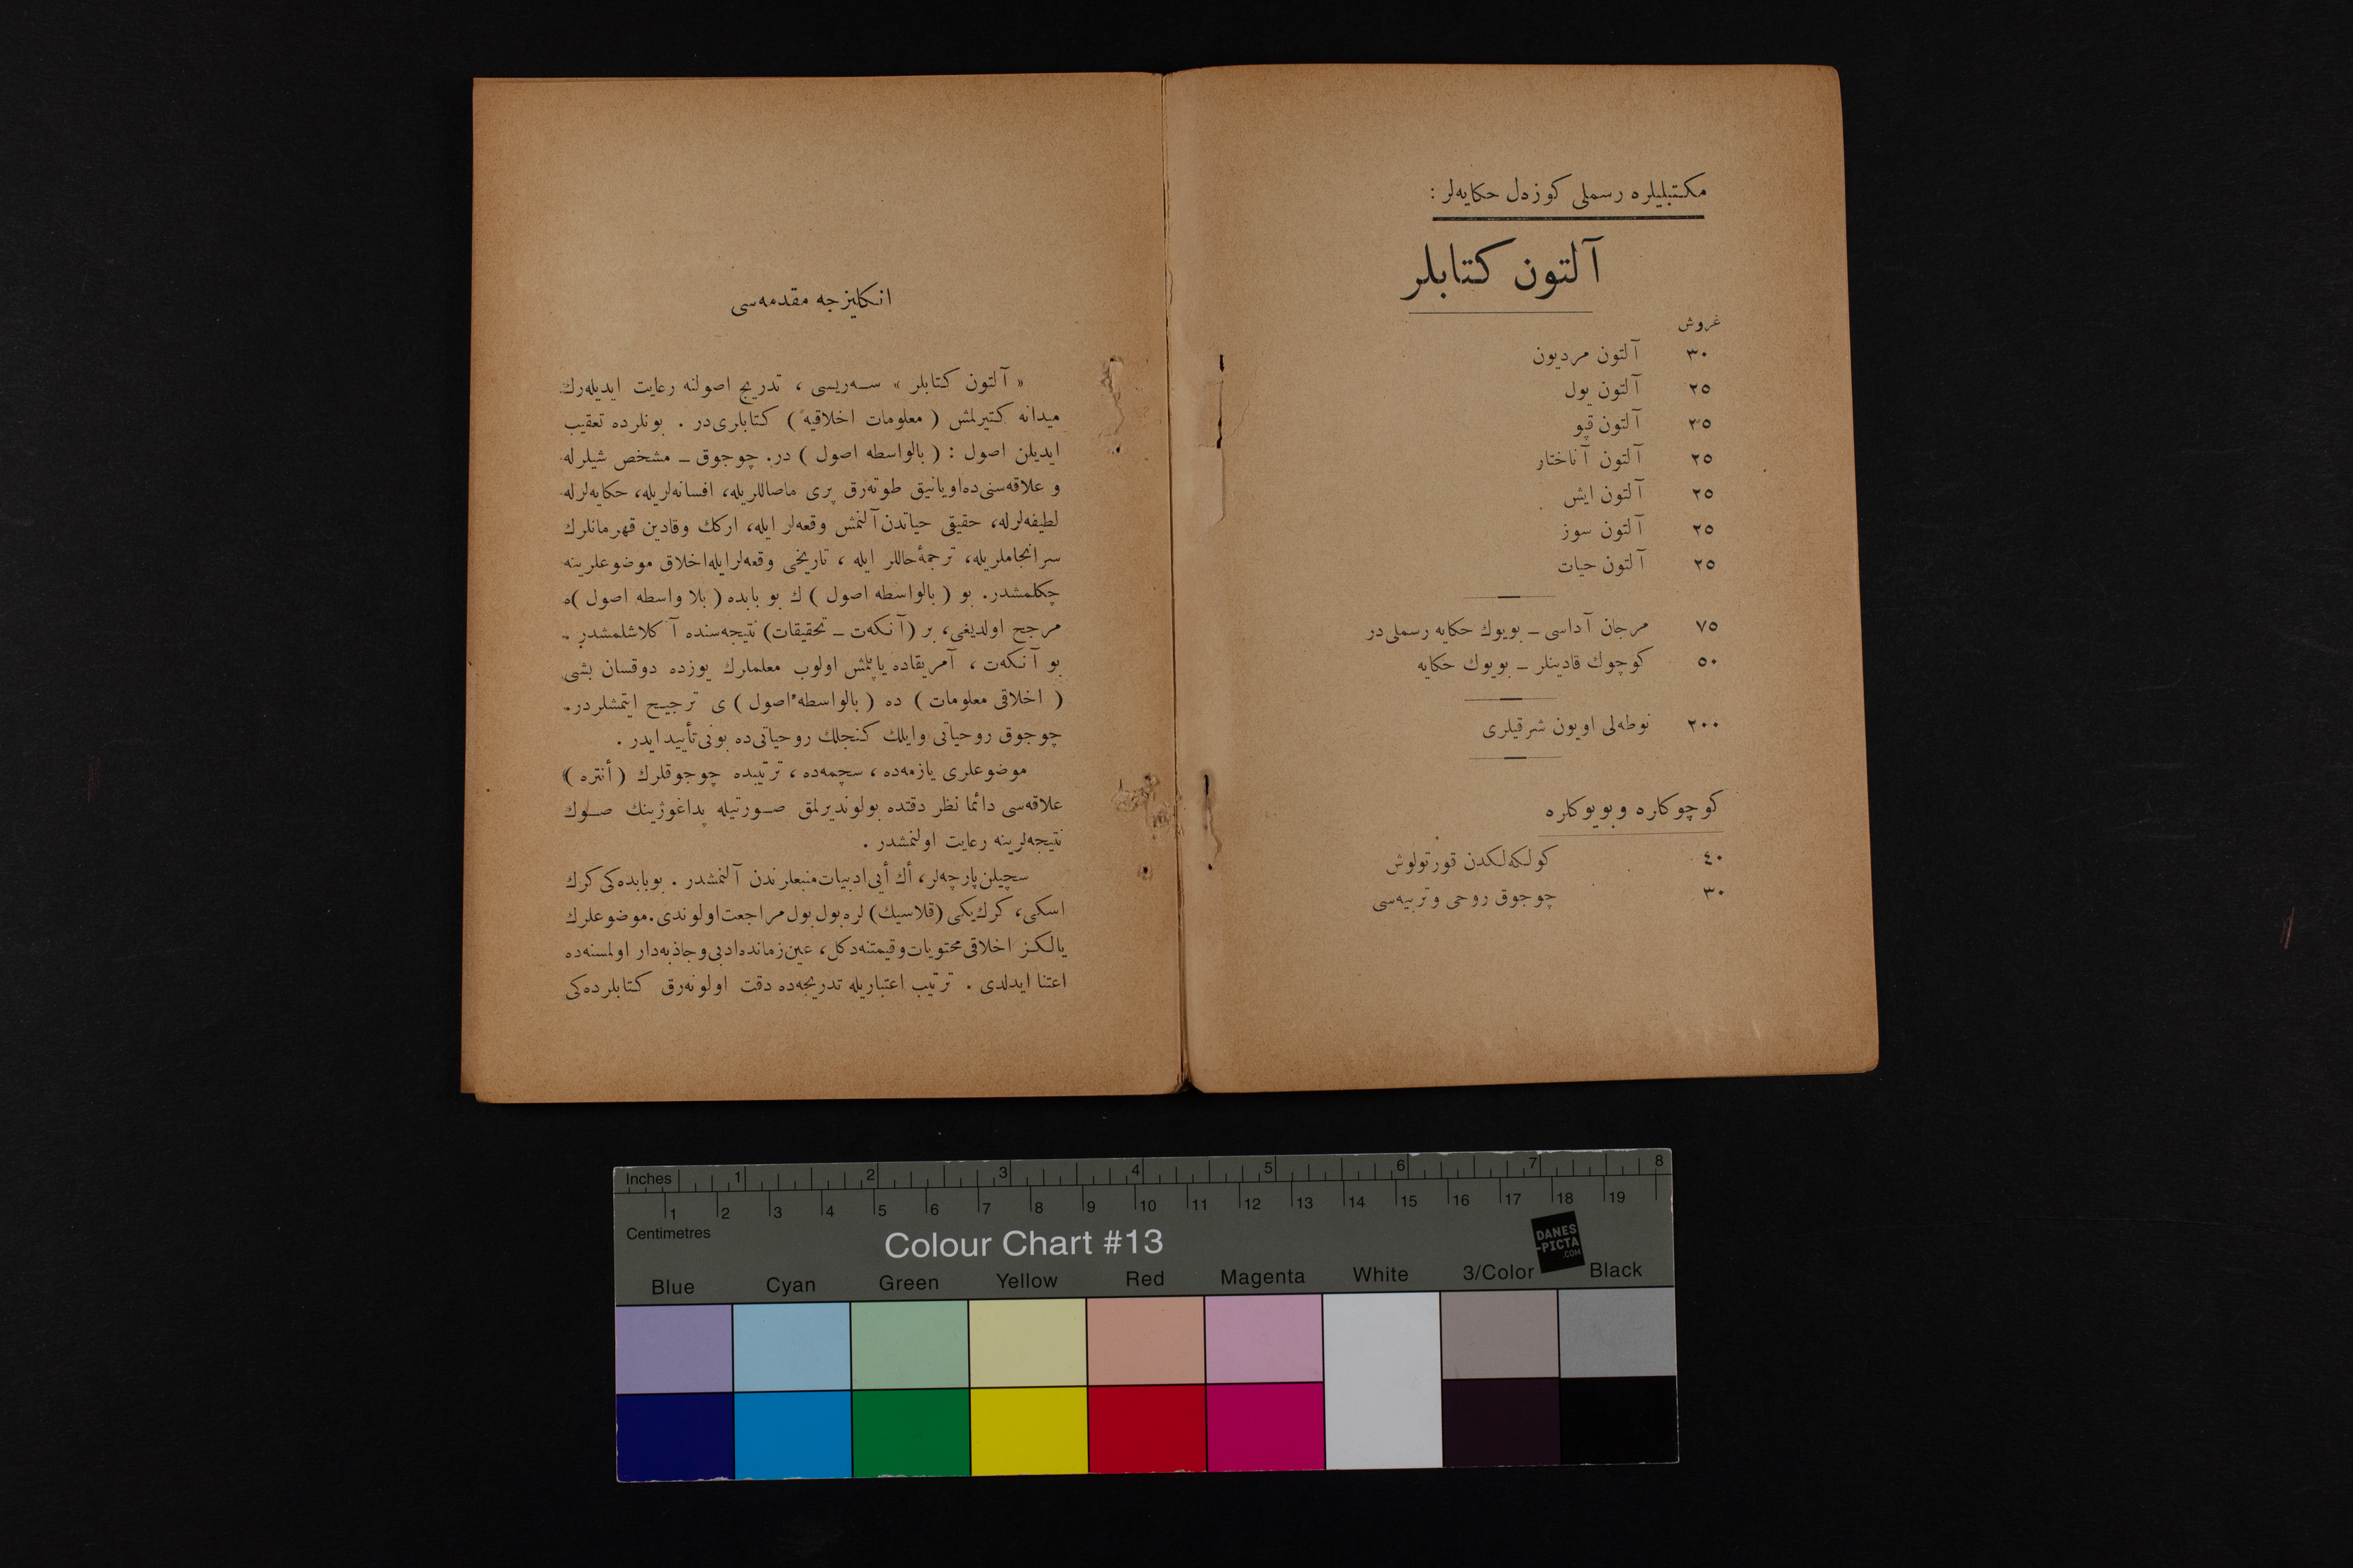 مكتبليلره رسملى كوزه‌ل حكايه‌لر :
آلتون كتابلر
غروش
٣٠ آلتون مرديون
٢٥ آلتون يول
٢٥ آلتون قپو
٢٥ آلتون آناختار
٢٥ آلتون ايش
٢٥ آلتون سوز
٢٥ آلتون حيات
٧٥ مرجان آداسى ـ بويوك حكايه رسملى در
٥٠ كوچوك قادينلر ـ بويوك حكايه
٢٠٠ نوطه‌لى اويون شرقيلرى
كوچوكلره وبويوكلره
٤٠ كولكه‌لكدن قورتولوش
٣٠ چوجوق روحى وتربيه‌سى
انكليزجه مقدمه‌سى
« آلتون كتابلر » سـه‌ريسى ، تدريج اصولنه رعايت ايديله‌رك
ميدانه كتيرلمش ( معلومات اخلاقيه ) كتابلرى‌در . بونلرده تعقيب
ايديلن اصول : ( بالواسطه اصول ) در. چوجوق ـ مشخص شيلرله
و علاقه‌سنى ده‌اويانيق طوته‌رق پرى ماصاللريله، افسانه‌لريله، حكايه‌لرله
لطيفه‌لرله، حقيقى حياتدن آلنمش وقعه‌لر ايله، اركك وقادين قهرمانلرك
سرانجاملريله، ترجمهٔ حاللر ايله ، تاريخى وقعه‌لرايله‌اخلاق موضوعلرينه
چكلمشدر. بو ( بالواسطه اصول ) ك بو بابده ( بلا واسطه اصول )ه
مرجح اولديغى، بر (آنكه‌ت ـ تحقيقات) نتيجه‌سنده آكلاشلمشدر .
بو آنكه‌ت ، آمريقاده ياپلمش اولوب معلملرك يوزده دوقسان بشى
( اخلاقى معلومات ) ده ( بالواسطه اصول ) ى ترجيح ايتمشلردر.
چوجوق روحياتى وايلك كنجلك روحياتى‌ده بونى‌تأييد ايدر .
موضوعلرى يازمه‌ده ، سچمه‌ده ، ترتيبده چوجوقلرك ( أنتره )
علاقه‌سى دائما نظر دقتده بولونديرلمق صـورتيله پداغوژينك صـوك
نتيجه‌لرينه رعايت اولنمشدر .
سچيلن‌پارچه‌لر، أك أيى‌ادبيات‌منبعلرندن آلنمشدر . بوبابده‌كى كرك
اسكى، كرك‌يكى (قلاسيك) لره بول بول مراجعت‌اولوندى.موضوعلرك
يالكـز اخلاقى‌محتويات‌وقيمتنه‌دكل، عين‌زمانده‌ادبى‌وجاذبه‌دار اولمسنه‌ده
اعتنا ايدلدى . ترتيب اعتباريله تدريجه‌ده دقت اولونه‌رق كتابلرده‌كى
Inches 1 2 3 4 5 6 7 8
1 2 3 4 5 6 7 8 9 10 11 12 13 14 15 16 17 18 19
Centimetres
Colour Chart #13
DANES
-PICTA
.COM
Blue Cyan Green Yellow Red Magenta White 3/Color Black